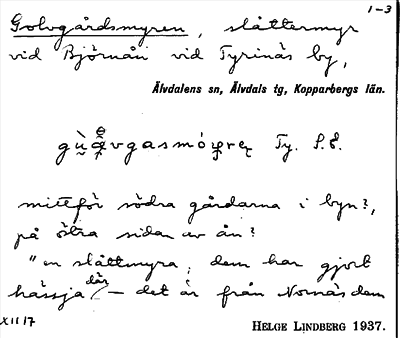 1-3
Golvgårdsmyren, slåttermyr
vid Björnån vid Tyrinäs by,
Älvdalens sn, Älvdals tg, Kopparbergs län.
Ty. S.E.
mittför södra gårdarna i byn?,
på östra sidan av ån?
"en slåttmyra; dem har gjort
hässja där – det är från Nornäs dem
XII 17
HELGE LINDBERG 1937.